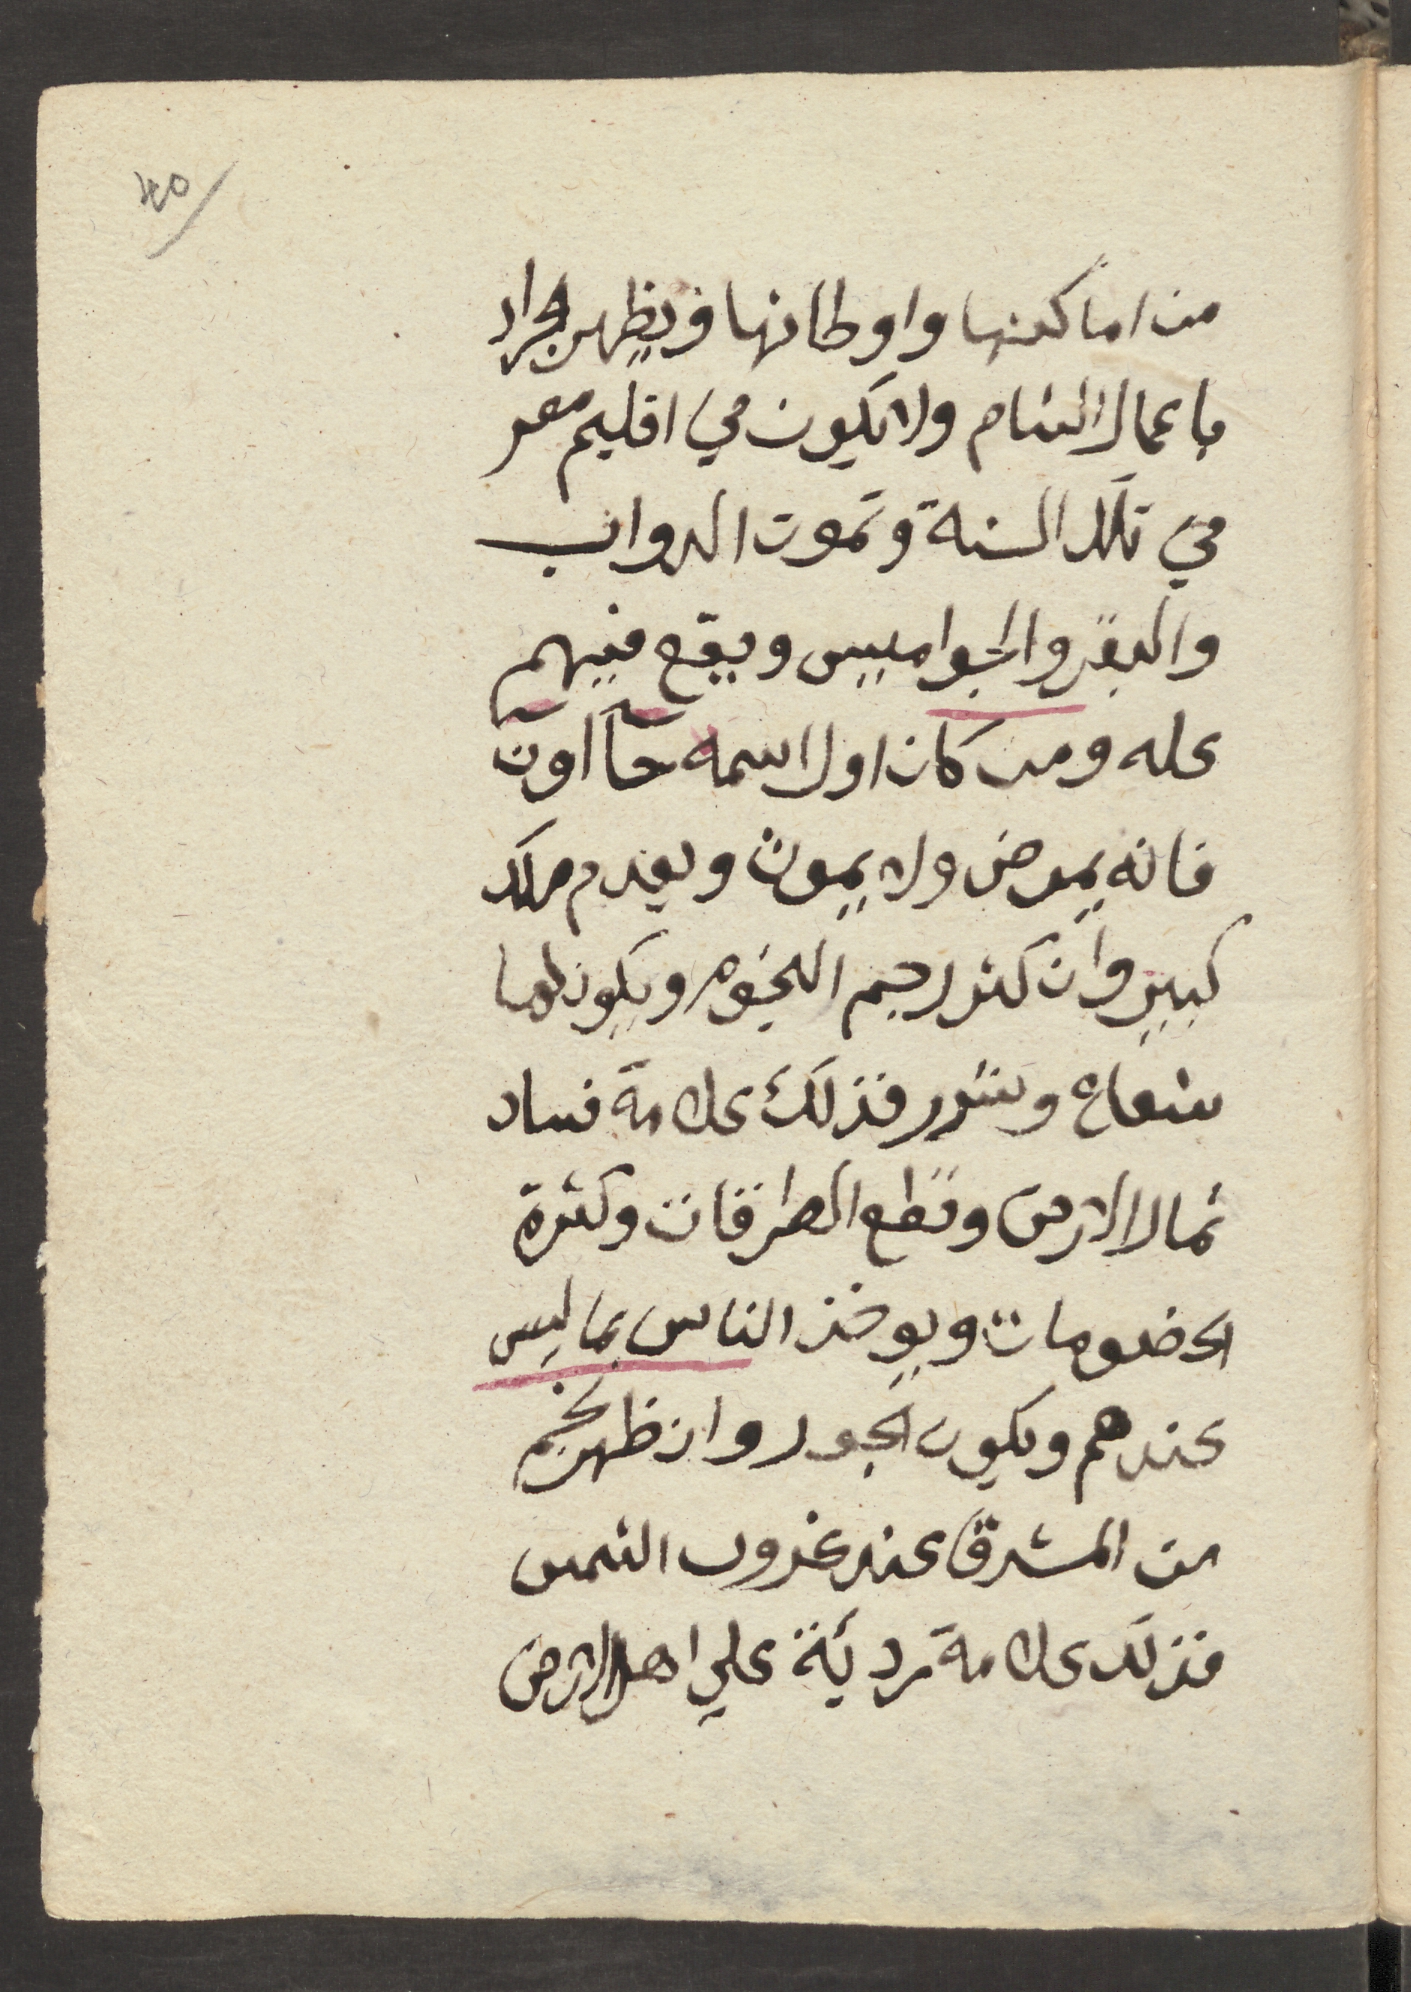 40
من اماكنها واوطانها ويظهر الجراد
باعمال الشام ولا يكون في اقليم مصر
في تلك السنة وتموت الدواب
والبقر والجواميس ويقع فيهم
عله ومن كان اول اسمه حا اون
فانه يمرض ولا يموت ويعدم ملك
كبير وان كثر رجم النجوم ويكون لها
شعاع وشرر فذلك علامة فساد
شمال الارض وقطع الطرقات وكثرة
الخصومات ويوخذ الناس بما ليس
عندهم ويكون الجور وان ظهر نجم
من المشرق عند غروب الشمس
فذلك علامة رديئة علي اهل الارض